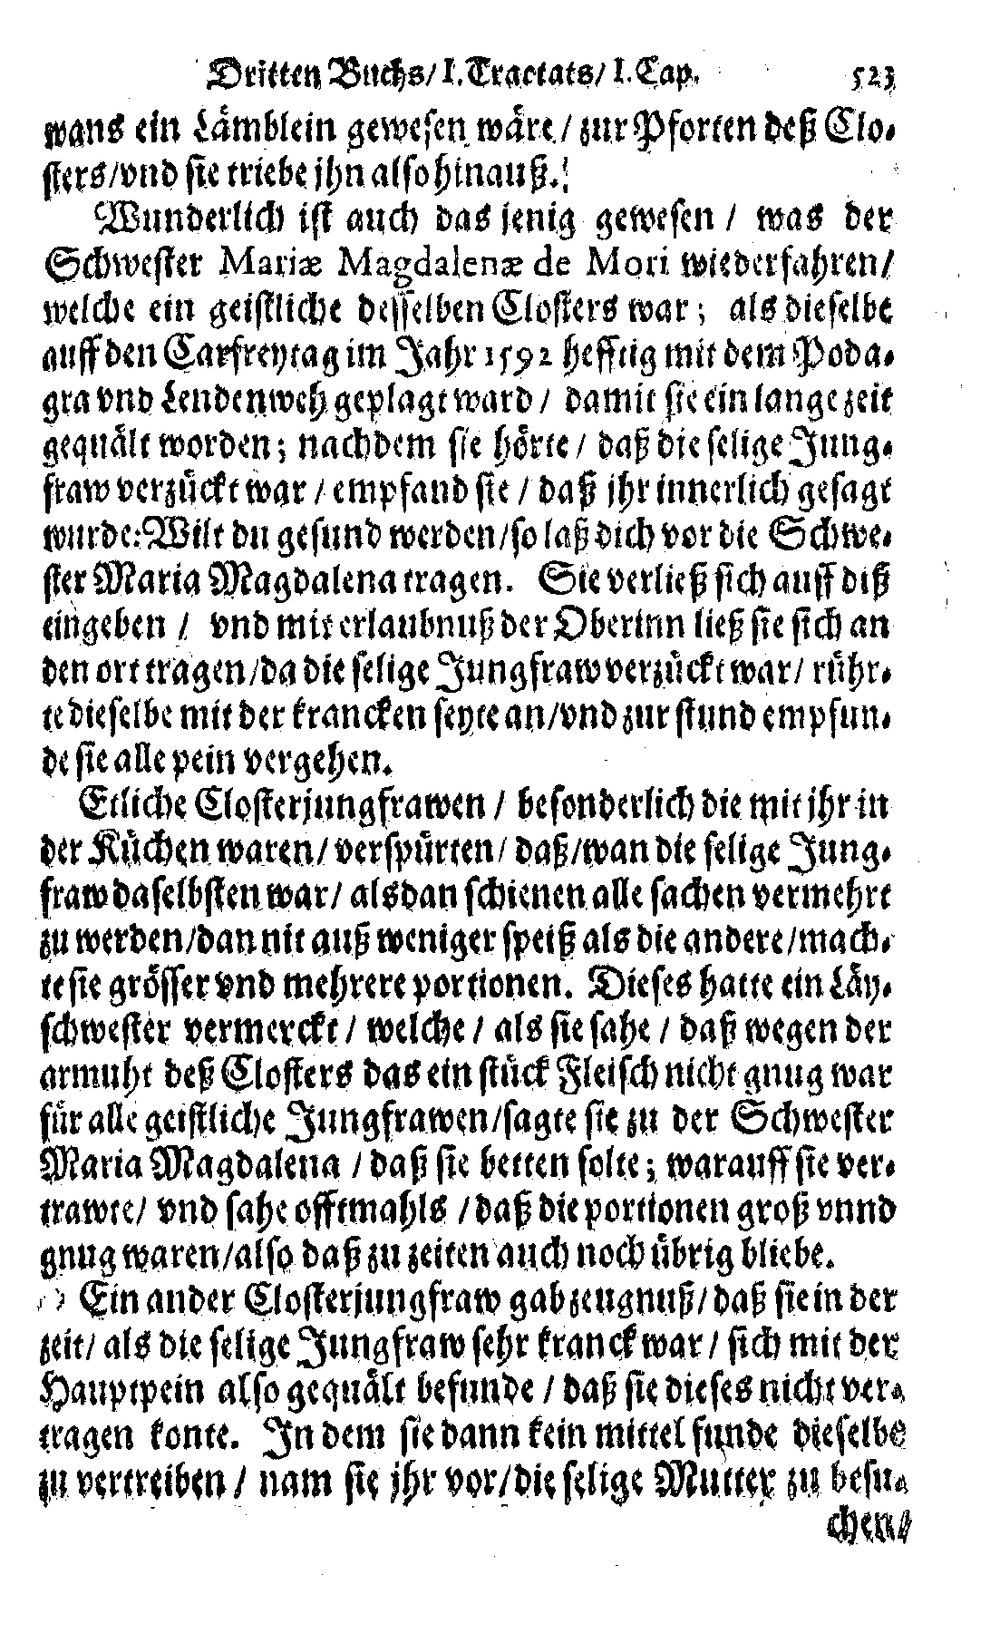 Dritten Buchs/ I. Tractats/ I. Cap. 523
wans ein Lämblein gewesen wäre/ zur Pforten deß Clo-
sters/vnd sie triebe jhn also hinauß.
Wunderlich ist auch das jenig gewesen/ was der
Schwester Mariæ Magdalenæ de Mori wiederfahren/
welche ein geistliche desselben Closters war; als dieselbe
auff den Carfreytag im Jahr 1592 hefftig mit dem Poda-
gra vnd Lendenweh geplagt ward/ damit sie ein lange zeit
gequält worden; nachdem sie hörte/ daß die selige Jung-
fraw verzückt war/ empfand sie/ daß jhr innerlich gesagt
wurde: Wilt du gesund werden/so laß dich vor die Schwe-
ster Maria Magdalena tragen. Sie verließ sich auff diß
eingeben/ vnd mit erlaubnuß der Oberinn ließ sie sich an
den ort tragen/da die selige Jungfraw verzückt war/ rühr-
te dieselbe mit der krancken seyte an/vnd zur stund empfun-
de sie alle pein vergehen.
Etliche Closterjungfrawen/ besonderlich die mit jhr in
der Küchen waren/ verspürten/ daß/wan die selige Jung-
fraw daselbsten war/ alsdan schienen alle sachen vermehrt
zu werden/dan nit auß weniger speiß als die andere/mach-
te sie grösser vnd mehrere portionen. Dieses hatte ein Läy-
schwester vermerckt/ welche/ als sie sahe/ daß wegen der
armuht deß Closters das ein stück Fleisch nicht gnug war
für alle geistliche Jungfrawen/sagte sie zu der Schwester
Maria Magdalena/ daß sie betten solte; warauff sie ver-
trawte/ vnd sahe offtmahls/ daß die portionen groß vnnd
gnug waren/also daß zu zeiten auch noch übrig bliebe.
Ein ander Closterjungfraw gab zeugnuß/ daß sie in der
zeit/ als die selige Jungfraw sehr kranck war/ sich mit der
Hauptpein also gequält befunde/ daß sie dieses nicht ver-
tragen konte. In dem sie dann kein mittel funde dieselbe
zu vertreiben/ nam sie jhr vor/die selige Mutter zu besu-
chen/